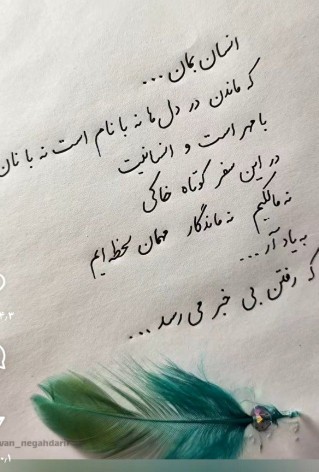 انسان بمان ...
که ماندن در دل ها نه با نام است نه با نان
با مهر است و انسانیت
در این سفر کوتاه خاکی
نه مالکیم نه ماندگار مهمان لحظه ایم
به یاد آر ...
که رفتن بی خبر می رسد ...
van_negahdari